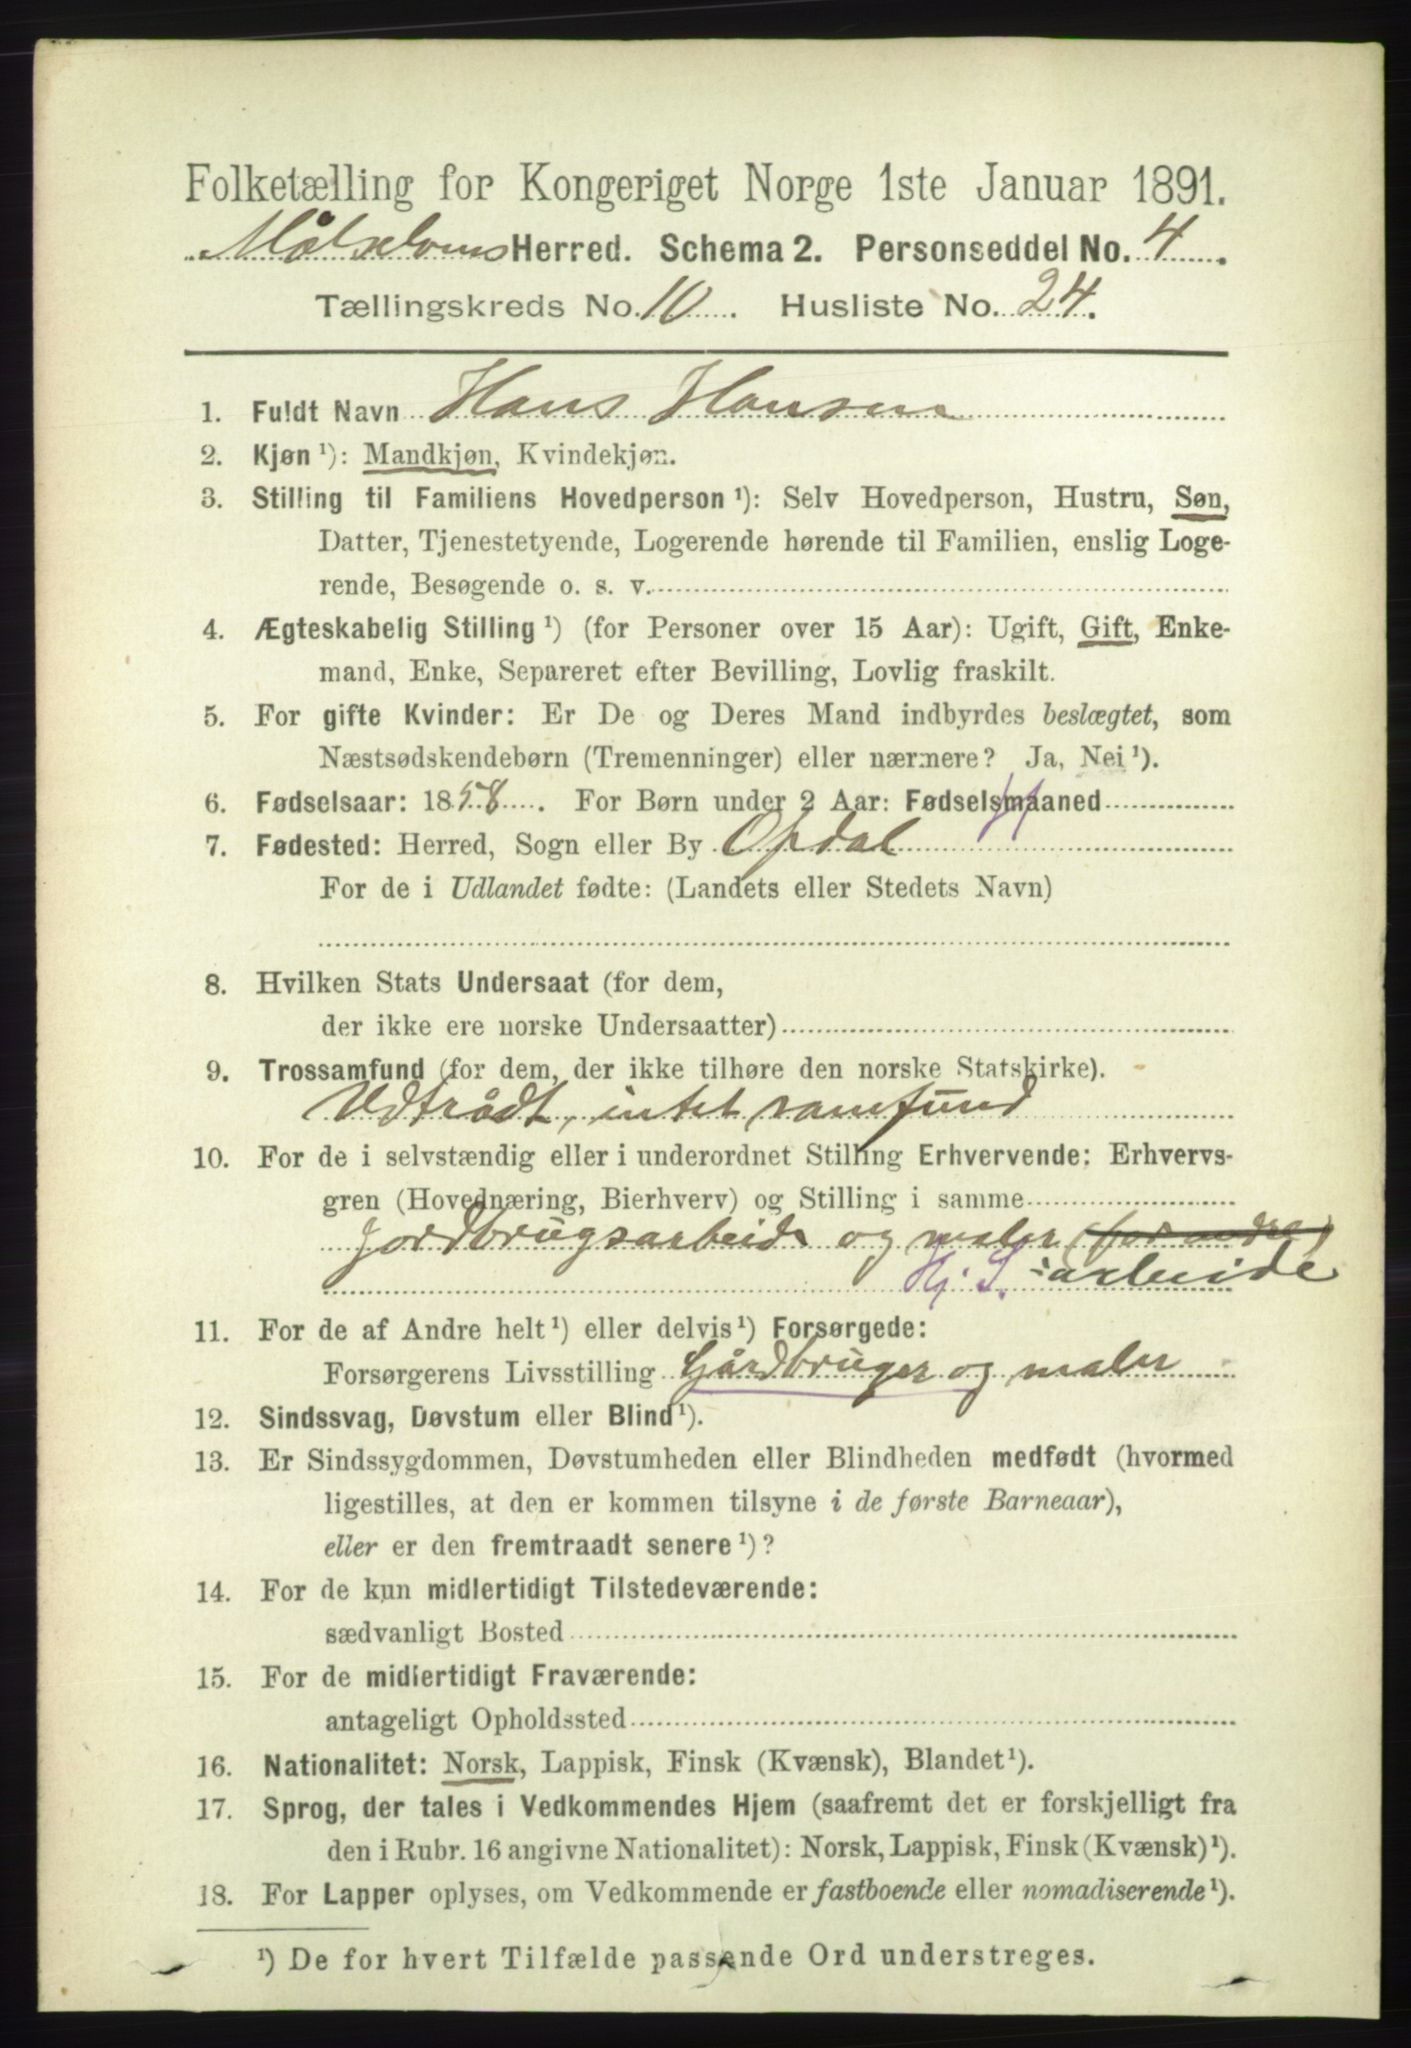 Folketælling for Kongeriget Norge 1ste Januar 1891.
Målselvens Herred. Schema 2. Personseddel No. 4.
Tællingskreds No. 10. Husliste No. 24.
1. Fuldt Navn Hans Hansen
2. Kjøn ¹): Mandkjøn, Kvindekjøn.
3. Stilling til Familiens Hovedperson ¹): Selv Hovedperson, Hustru, Søn,
Datter, Tjenestetyende, Logerende hørende til Familien, enslig Loge-
rende, Besøgende o. s. v.
4. Ægteskabelig Stilling ¹) (for Personer over 15 Aar): Ugift, Gift, Enke-
mand, Enke, Separeret efter Bevilling, Lovlig fraskilt.
5. For gifte Kvinder: Er De og Deres Mand indbyrdes beslægtet, som
Næstsødskendebørn (Tremenninger) eller nærmere? Ja, Nei ¹).
6. Fødselsaar: 1858. For Børn under 2 Aar: Fødselsmaaned
7. Fødested: Herred, Sogn eller By Opdal
For de i Udlandet fødte: (Landets eller Stedets Navn)
8. Hvilken Stats Undersaat (for dem,
der ikke ere norske Undersaatter)
9. Trossamfund (for dem, der ikke tilhøre den norske Statskirke).
Udtrådt, intet samfund
10. For de i selvstændig eller i underordnet Stilling Erhvervende: Erhvervs-
gren (Hovednæring, Bierhverv) og Stilling i samme
Jordbrugsarbeide og maler (for andre)
Hj. S. arbeide
11. For de af Andre helt ¹) eller delvis ¹) Forsørgede:
Forsørgerens Livsstilling Gårdbruger og maler
12. Sindssvag, Døvstum eller Blind ¹).
13. Er Sindssygdommen, Døvstumheden eller Blindheden medfødt (hvormed
ligestilles, at den er kommen tilsyne i de første Barneaar),
eller er den fremtraadt senere ¹)?
14. For de kun midlertidigt Tilstedeværende:
sædvanligt Bosted
15. For de midlertidigt Fraværende:
antageligt Opholdssted
16. Nationalitet: Norsk, Lappisk, Finsk (Kvænsk), Blandet ¹).
17. Sprog, der tales i Vedkommendes Hjem (saafremt det er forskjelligt fra
den i Rubr. 16 angivne Nationalitet): Norsk, Lappisk, Finsk (Kvænsk) ¹).
18. For Lapper oplyses, om Vedkommende er fastboende eller nomadiserende ¹).
¹) De for hvert Tilfælde passende Ord understreges.